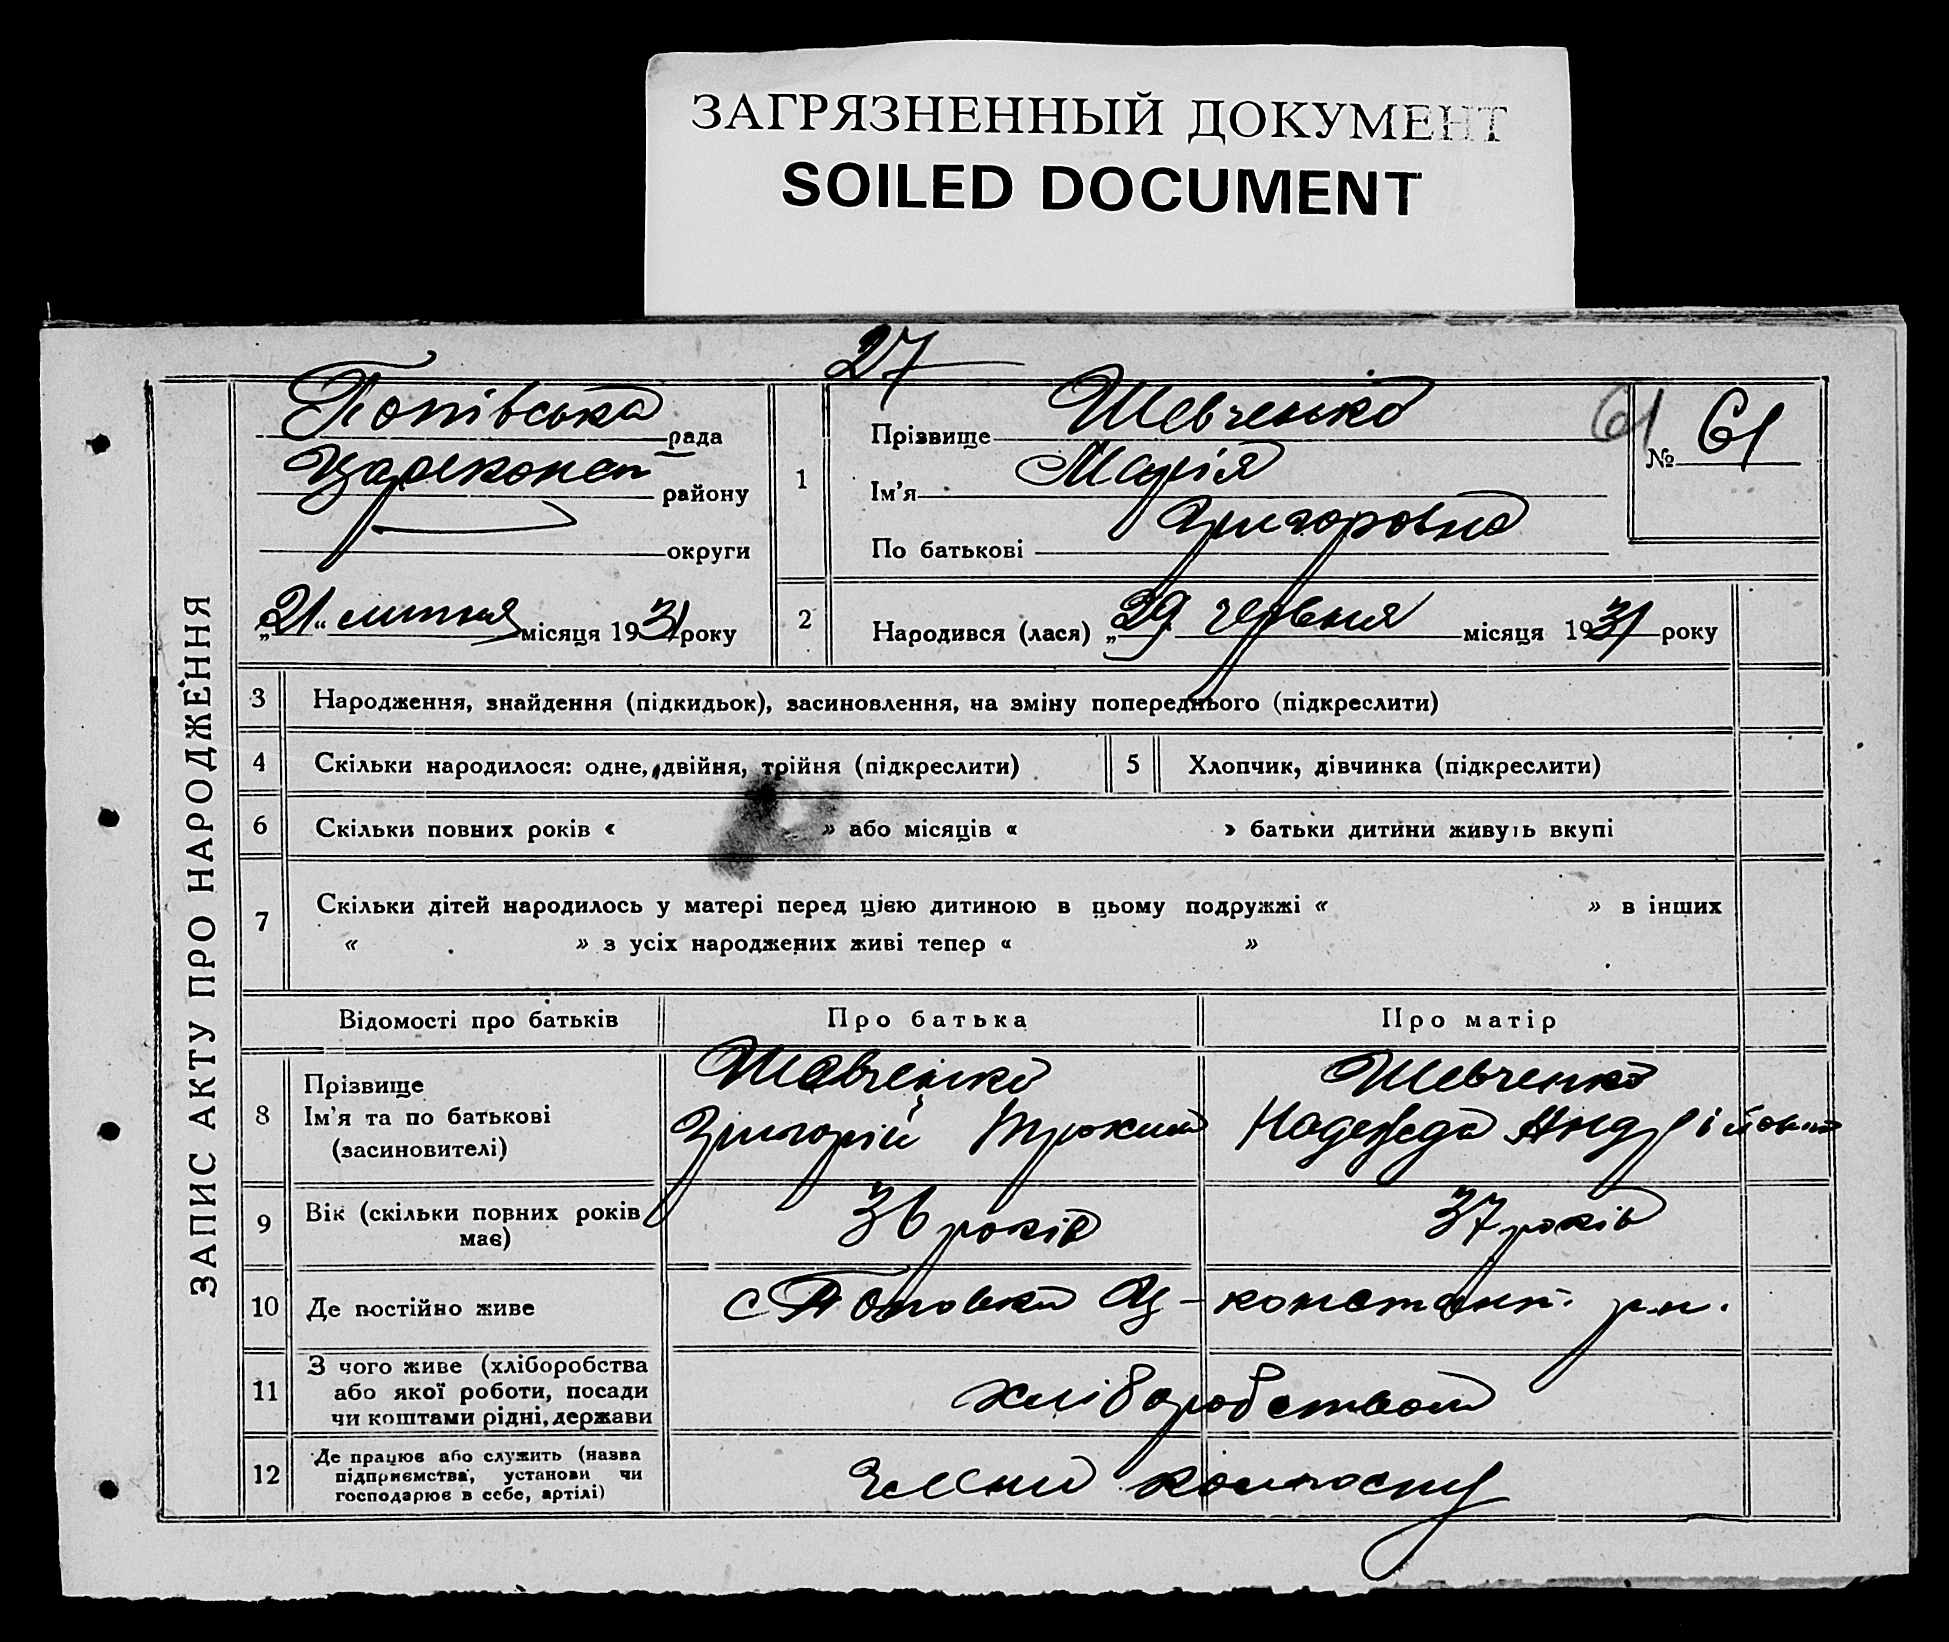 ЗАГРЯЗНЕННЫЙ ДОКУМЕНТ
SOILED DOCUMENT
27
ЗАПИС АКТУ ПРО НАРОДЖЕННЯ
Попівська рада
Цареконст району
округи
„21“ липня місяця 1931 року
1
Прізвище Шевченко
Ім'я Марія
По батькові Григоровна
61
№ 61
2
Народився (лася) „29 червня місяця 1931 року
3 Народження, знайдення (підкидьок), засиновлення, на зміну попереднього (підкреслити)
4 Скільки народилося: одне, двійня, трійня (підкреслити)
5 Хлопчик, дівчинка (підкреслити)
6 Скільки повних років « » або місяців « » батьки дитини живуть вкупі
7 Скільки дітей народилось у матері перед цією дитиною в цьому подружжі « » в інших
« » з усіх народжених живі тепер « »
Відомості про батьків Про батька Про матір
8
Прізвище
Ім'я та по батькові
(засиновителі)
Шевченко
Григорій
Шевченко
Надежда Андрійовна
9
Вік (скільки повних років
має)
36 років
37 років
10 Де постійно живе
с Поповка Ц-константи. р-н.
11
З чого живе (хліборобства
або якої роботи, посади
чи коштами рідні, держави
хліборобством
12
Де працює або служить (назва
підприємства, установи чи
господарює в себе, артілі)
Член колгоспу